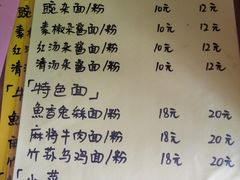 豌杂面/粉 10元 12元
素椒杂酱面/粉 10元 12元
红汤杂酱面/粉 10元 12元
清汤杂酱面/粉 10元 12元
「特色面」
鱼香兔丝面/粉 18元 20元
麻将牛肉面/粉 18元 20元
竹荪乌鸡面/粉 18元 20元